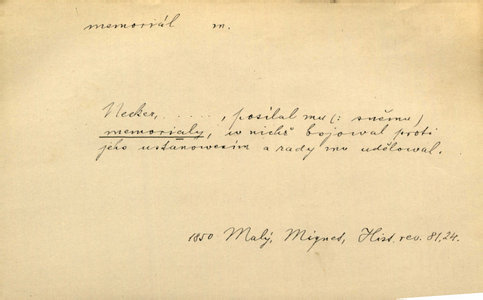 memoriál m.
Necker, ....., posílal mu (: sněmu)
memorialy, w nichž bojowal proti
jeho ustanowením a rady mu uděloval.
1850 Malý, Mignet, Hist. rev. 81,24.